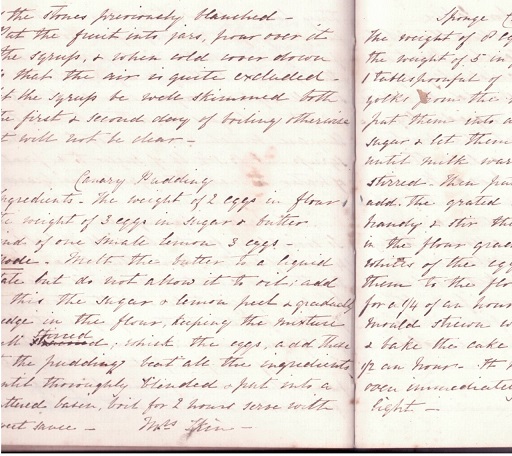 the stones previously blanched –
Put the fruit into jars, pour over it
the syrup, & when cold cover down
that the air is quite excluded –
the syrup be well skimmed both
first & second day of boiling otherwise
will not be clear –
Canary Pudding
Ingredients – The weight of 2 eggs in flour,
weight of 3 eggs in sugar & butter
of one small lemon 3 eggs –
Mode – Melt the butter to a liquid
but do not allow it to oil; add
this the sugar & lemon peel & gradually
in the flour, keeping the mixture
stirred; whisk the eggs, add these
the pudding; beat all the ingredients
until thoroughly blended & put into a
basin, boil for 2 hours serve with
sauce –
Sponge
The weight of 8
the weight of 5 in
1 tablespoonful of
yolks from the
put them into a
sugar & let them
until milk
stirred – Then
add the grated
& stir the
in the flour
whites of the
them to the
for a 1/4 of an hour
mould strewn
& bake the cake
1/2 an hour –
oven immediately
light –